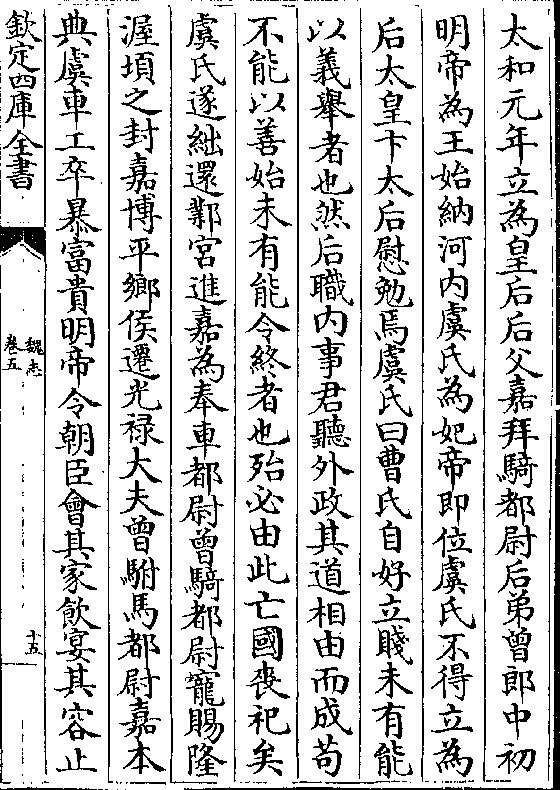 太和元年立為皇后后父嘉拜騎都尉后弟曾郎中初
明帝為王始納河内虞氏為妃帝即位虞氏不得立為
后太皇卞太后慰勉焉虞氏曰曹氏自好立賤未有能
以義舉者也然后職内事君聽外政其道相由而成苟
不能以善始未有能令終者也殆必由此亡國喪祀矣
虞氏遂絀還鄴宫進嘉為奉車都尉曾騎都尉寵賜隆
渥頃之封嘉博平鄉侯遷光禄大夫曾駙馬都尉嘉本
典虞車工卒暴富貴明帝令朝臣會其家飲宴其容止
欽定四庫全書
魏志
卷五
十五